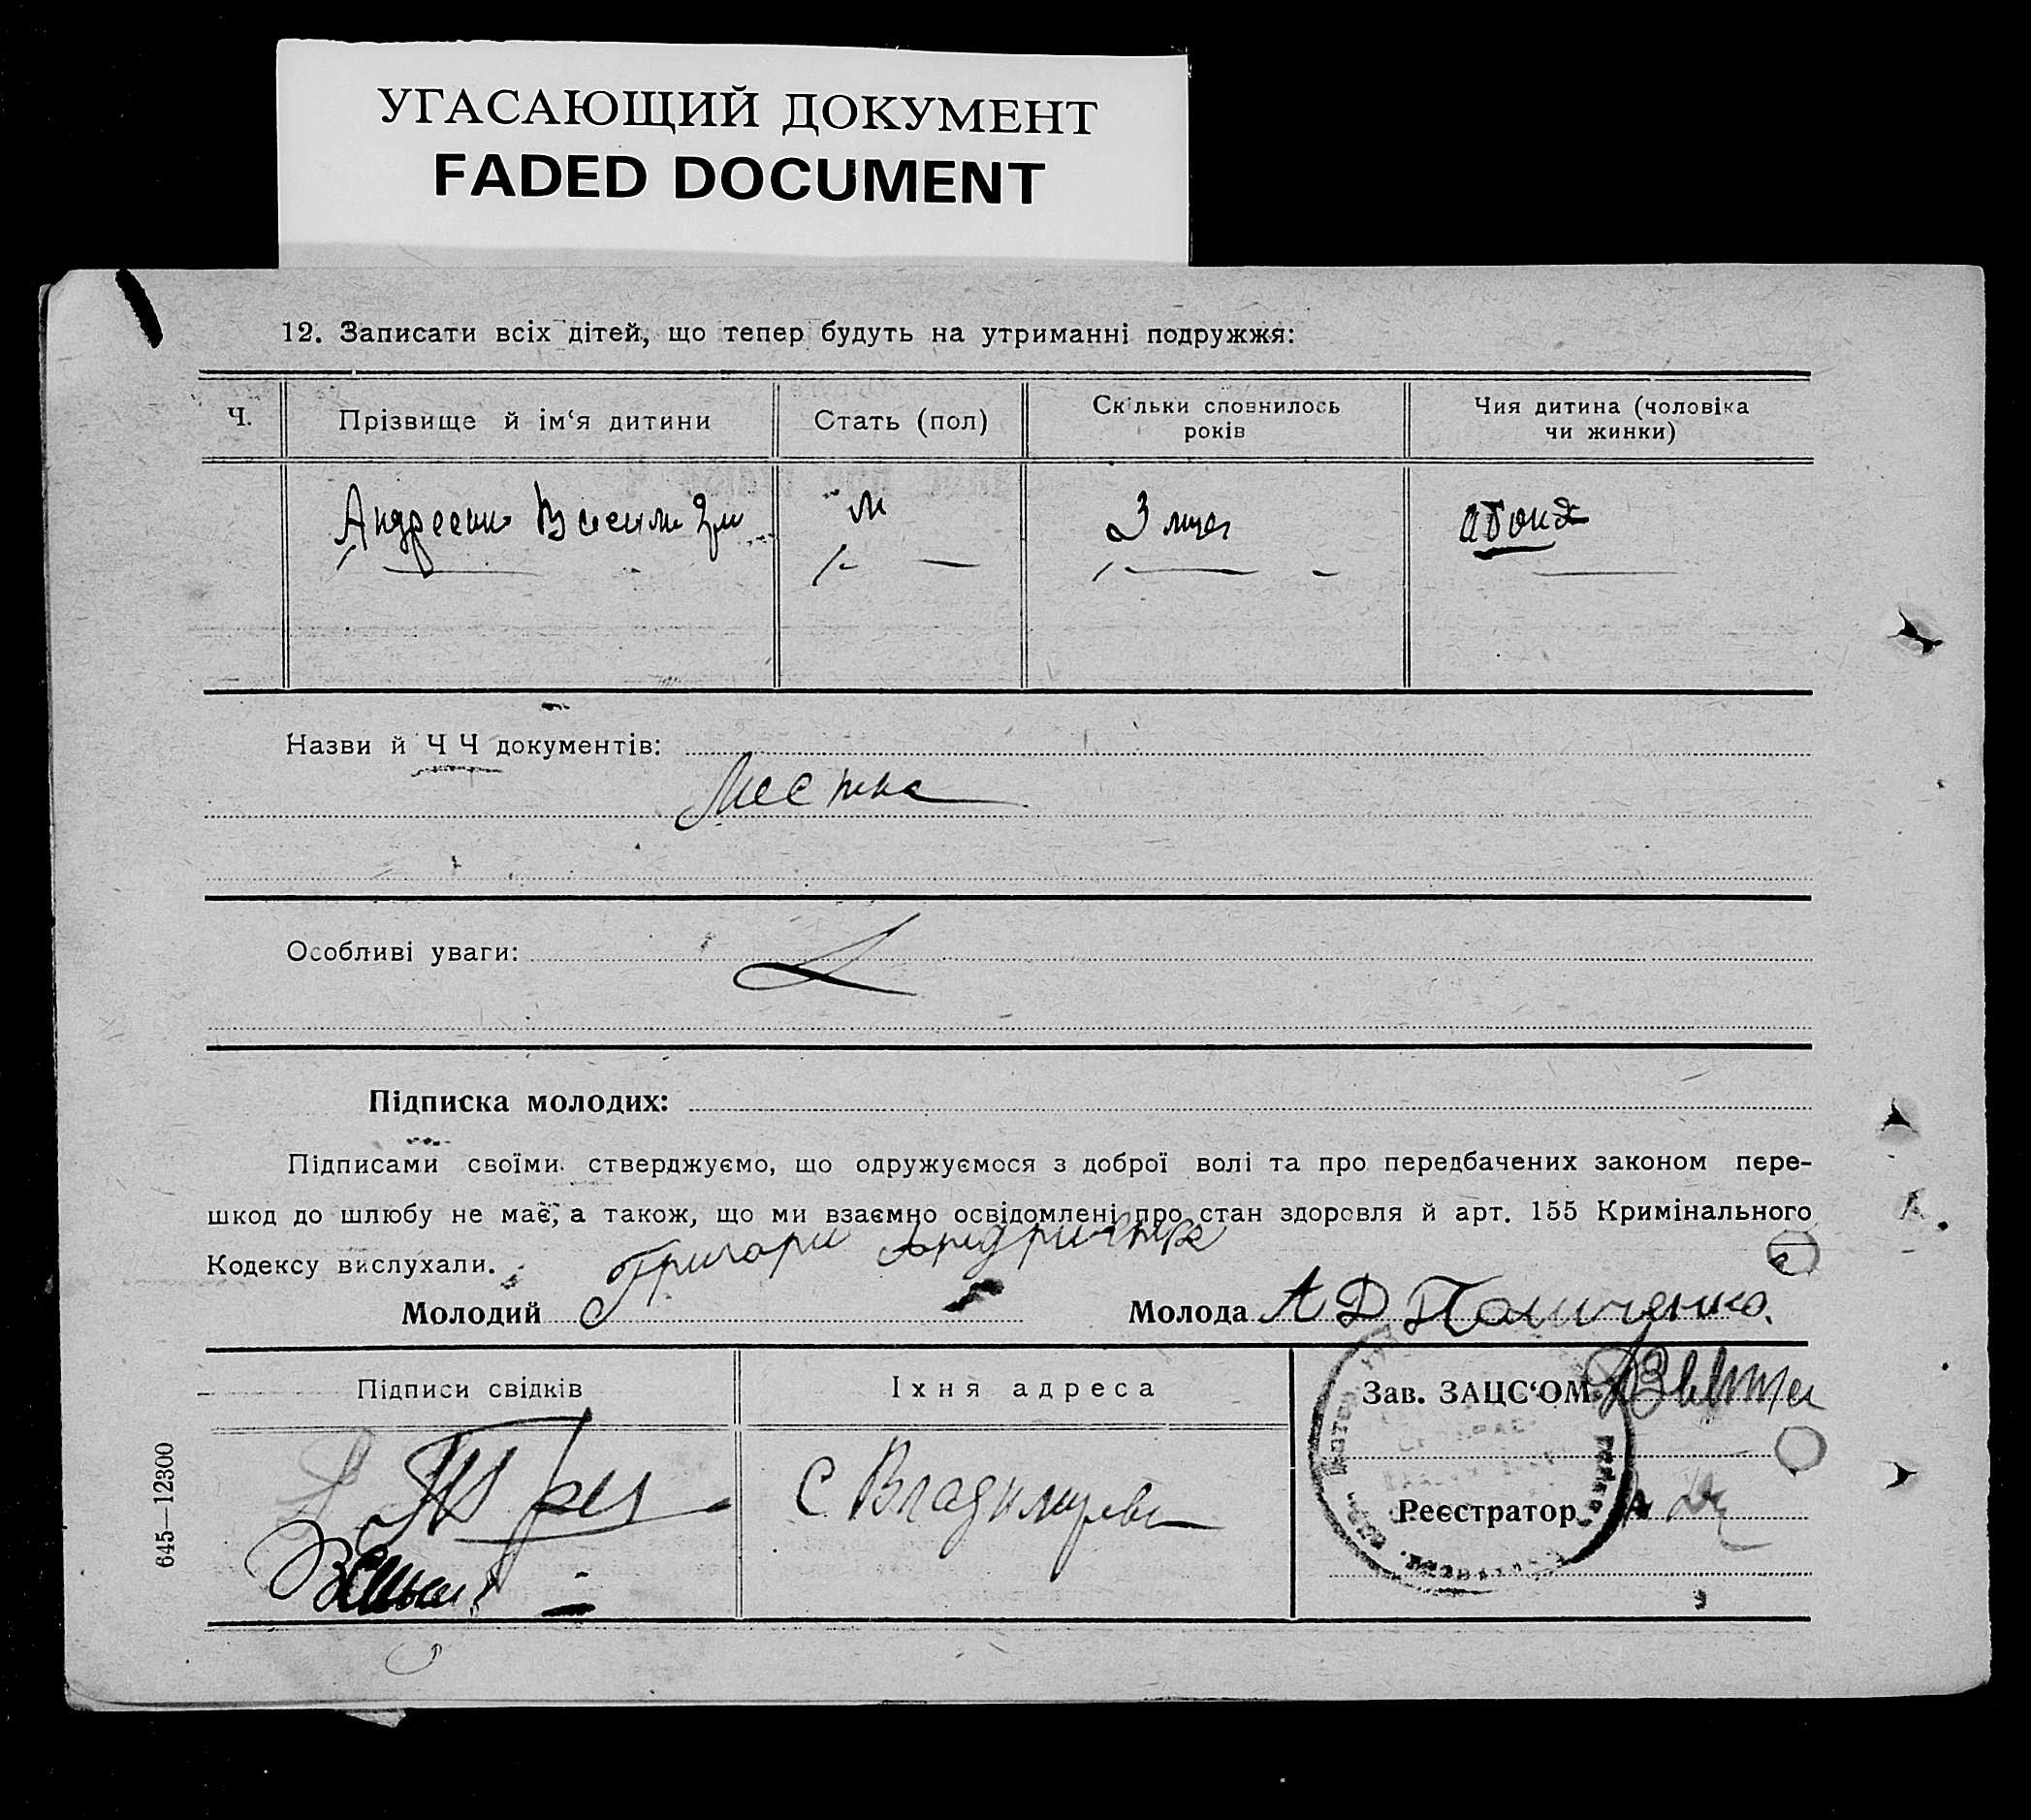 УГАСАЮЩИЙ ДОКУМЕНТ
FADED DOCUMENT
12. Записати всіх дітей, що тепер будуть на утриманні подружжя:
Ч.
Прізвище й ім‘я дитини
Стать (пол)
Скільки сповнилось
років
Чия дитина (чоловіка
чи жинки)
м
3
Назви й Ч Ч документів:
Особливі уваги:
Підписка молодих:
Підписами своїми стверджуємо, що одружуємося з доброї волі та про передбачених законом пере-
шкод до шлюбу не має, а також, що ми взаємно освідомлені про стан здоровля й арт. 155 Кримінального
Кодексу вислухали.
Молодий Григори
Молода А Д
Підписи свідків
Іхня адреса
Зав. ЗАЦС‘ОМ
С
Реєстратор
645—12300